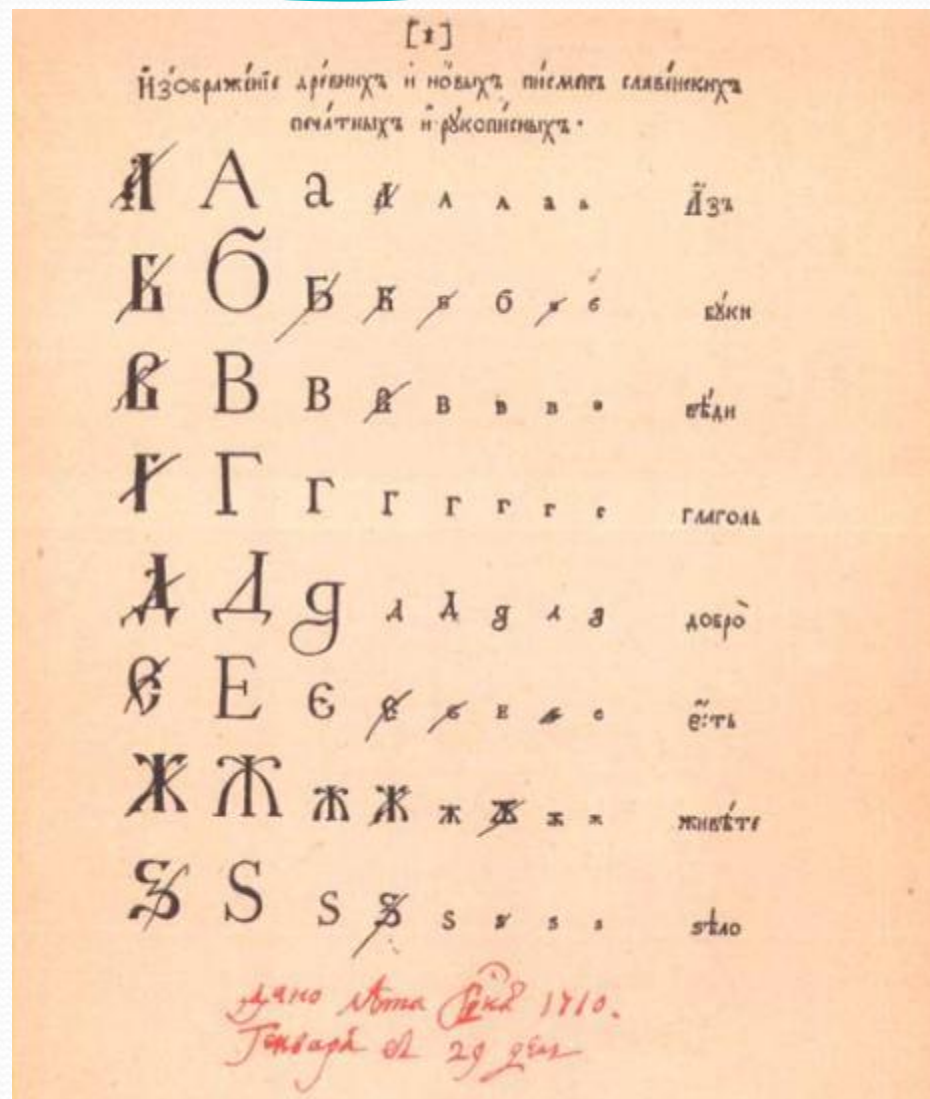 [1]
Изображе́нїе дре́внихъ и но́выхъ пи́сменъ славе́нскихъ
печа́тныхъ и рꙋкопи́сныхъ.
А А а а а а а а А҆́зъ
Б Б Б Б Б б б б бꙋ́ки
В В В В В в в в вѣ́ди
Г Г г г г г г г глаголь
Д Д д д д д д д добро̀
Е Е є є є е е е є҆́сть
Ж Ж ж ж ж ж ж ж живѣ́те
Ѕ Ѕ ѕ ѕ ѕ ѕ ѕ ѕ ѕѣло
Дано лѣта 1710.
Генваря въ 29 день